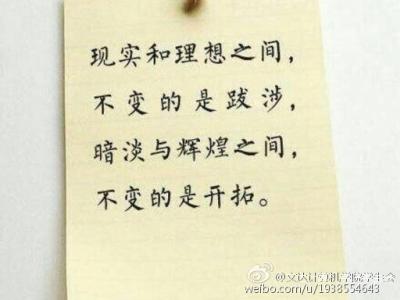 现实和理想之间，
不变的是跋涉，
暗淡与辉煌之间，
不变的是开拓。
weibo.com/u/1938554643